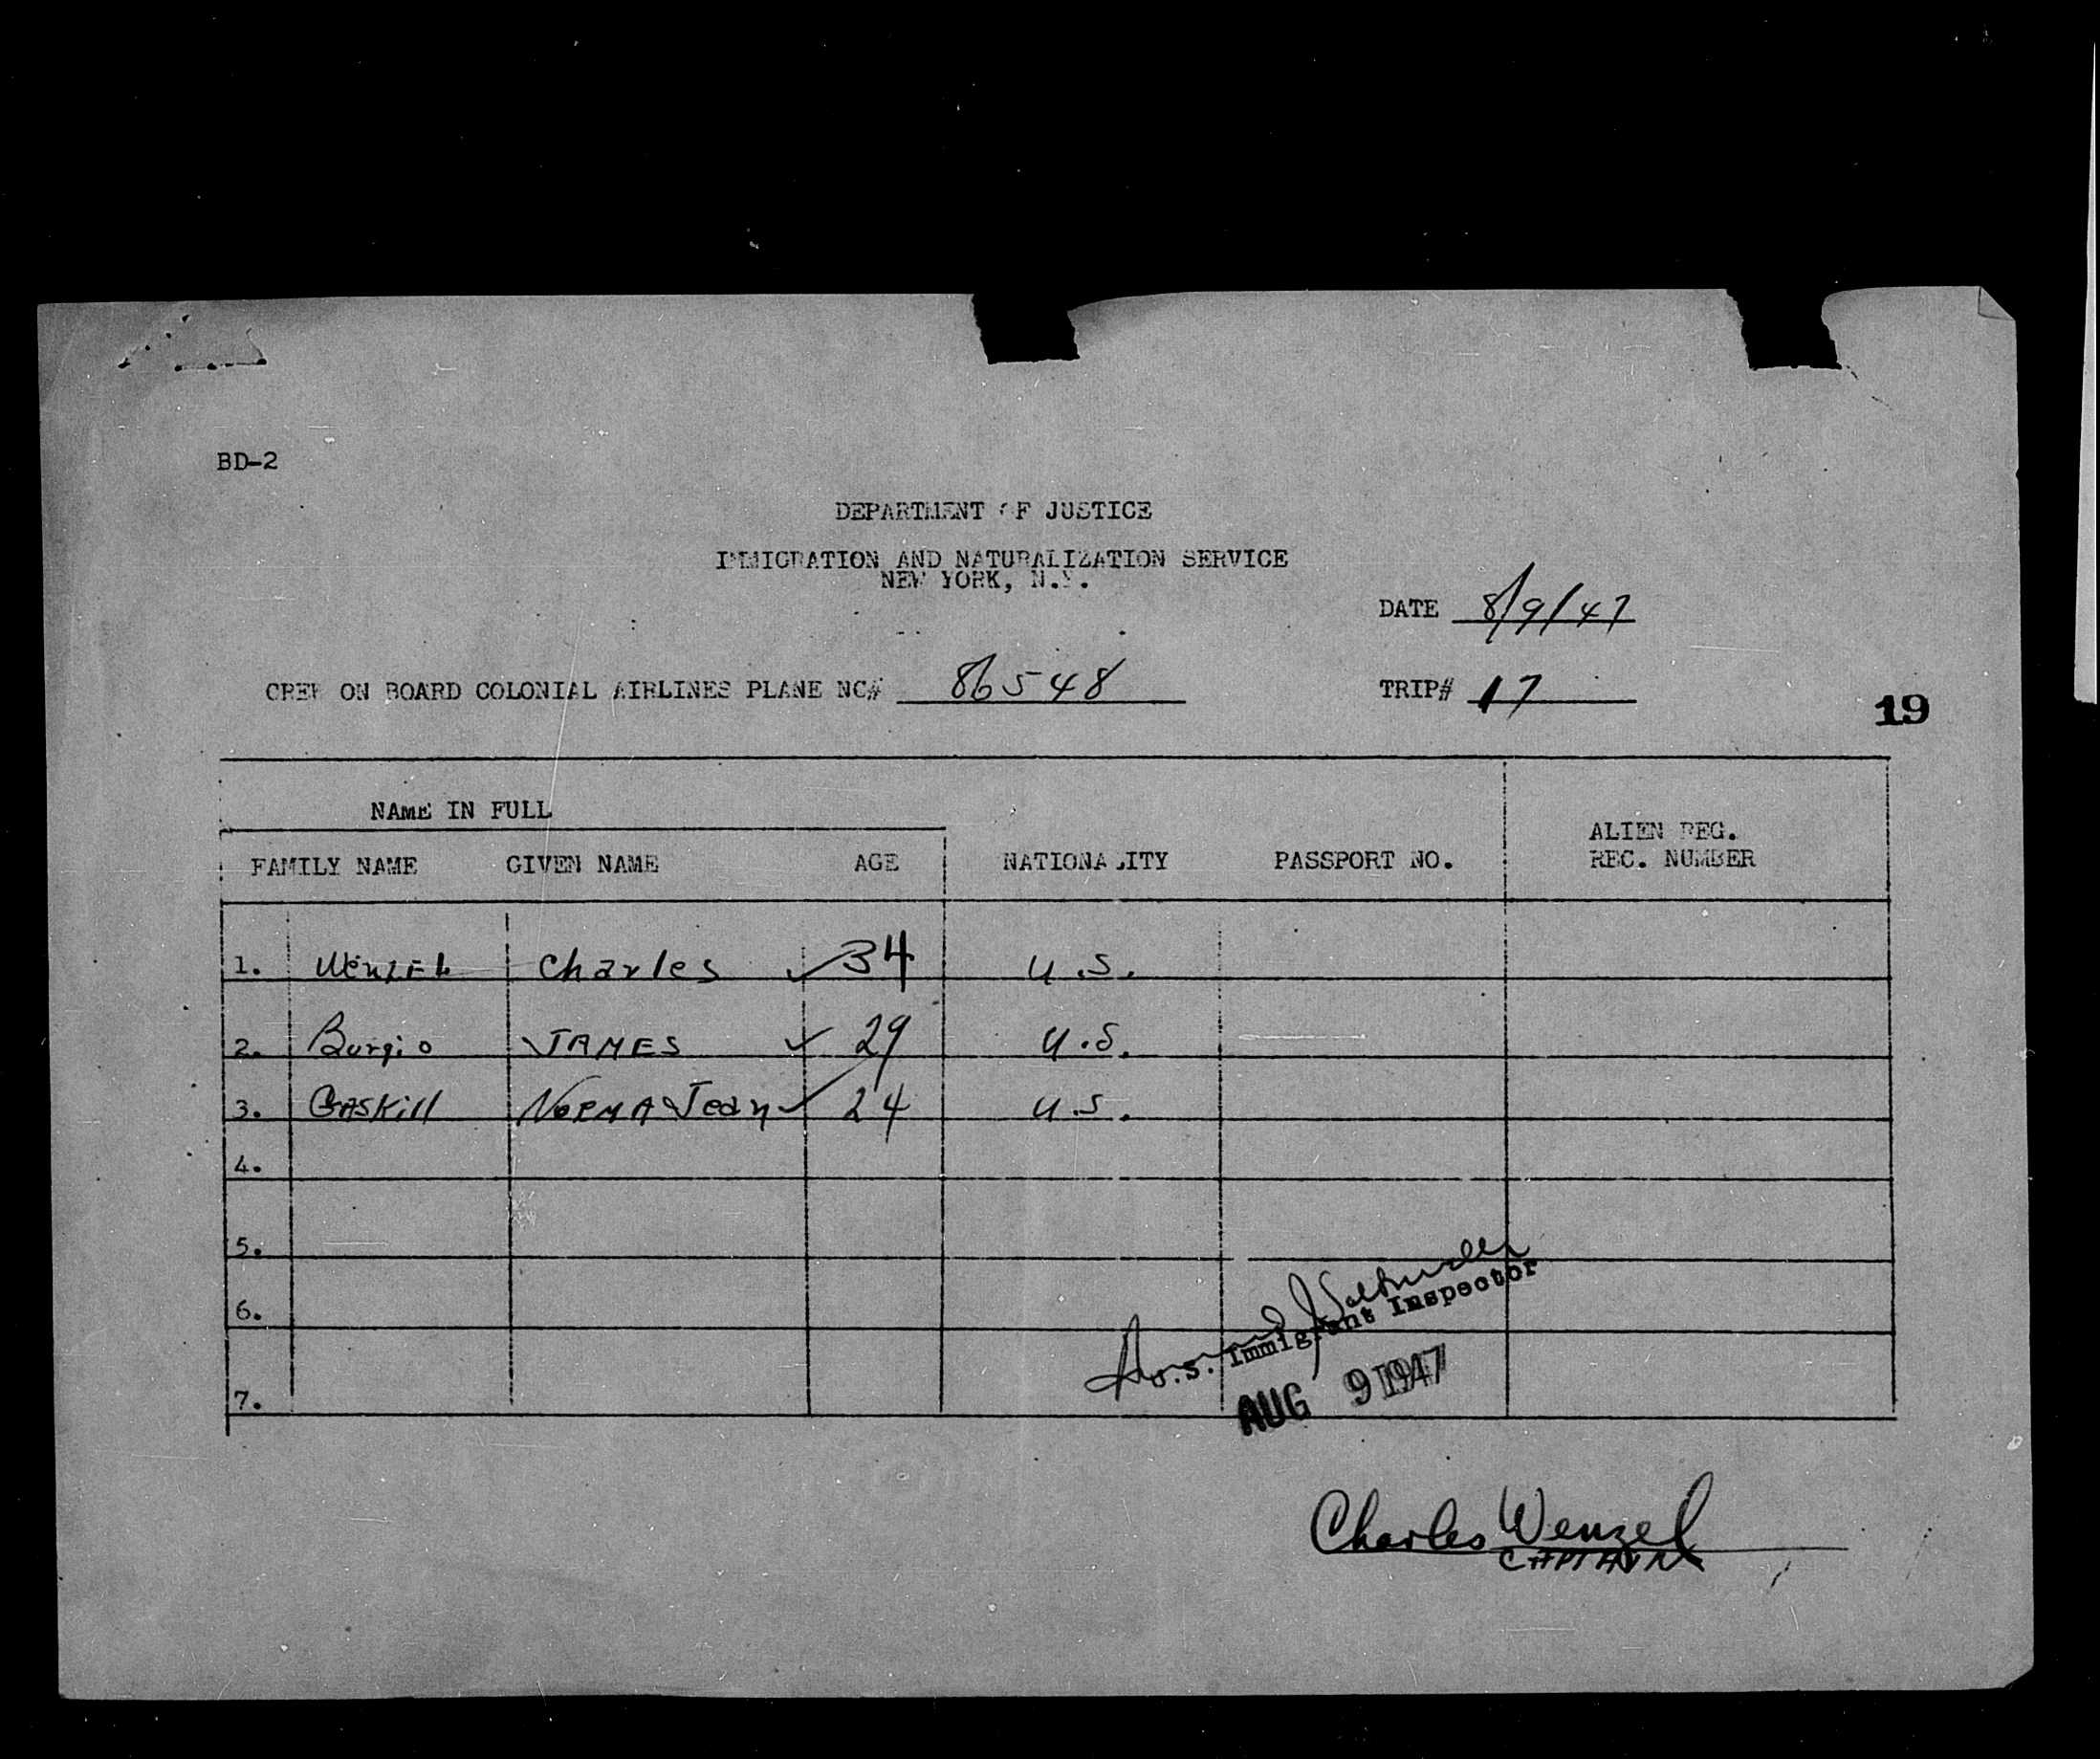 BD-2
DEPARTMENT OF JUSTICE
IMMIGRATION AND NATURALIZATION SERVICE
NEW YORK, N.Y.
DATE 8/9/47
CREW ON BOARD COLONIAL AIRLINES PLANE NC# 86548 TRIP# 17
19
NAME IN FULL
FAMILY NAME GIVEN NAME AGE NATIONALITY PASSPORT NO. ALIEN REG. REC. NUMBER
1. WENZEL Charles ✓ 34 U.S.
2. Burgio JAMES ✓ 29 U.S.
3. GASKill NORMA Jean ✓ 24 U.S.
4.
5.
6.
7.
U.S. Immigrant Inspector
AUG 9 1947
Charles Wenzel
CAPTAIN